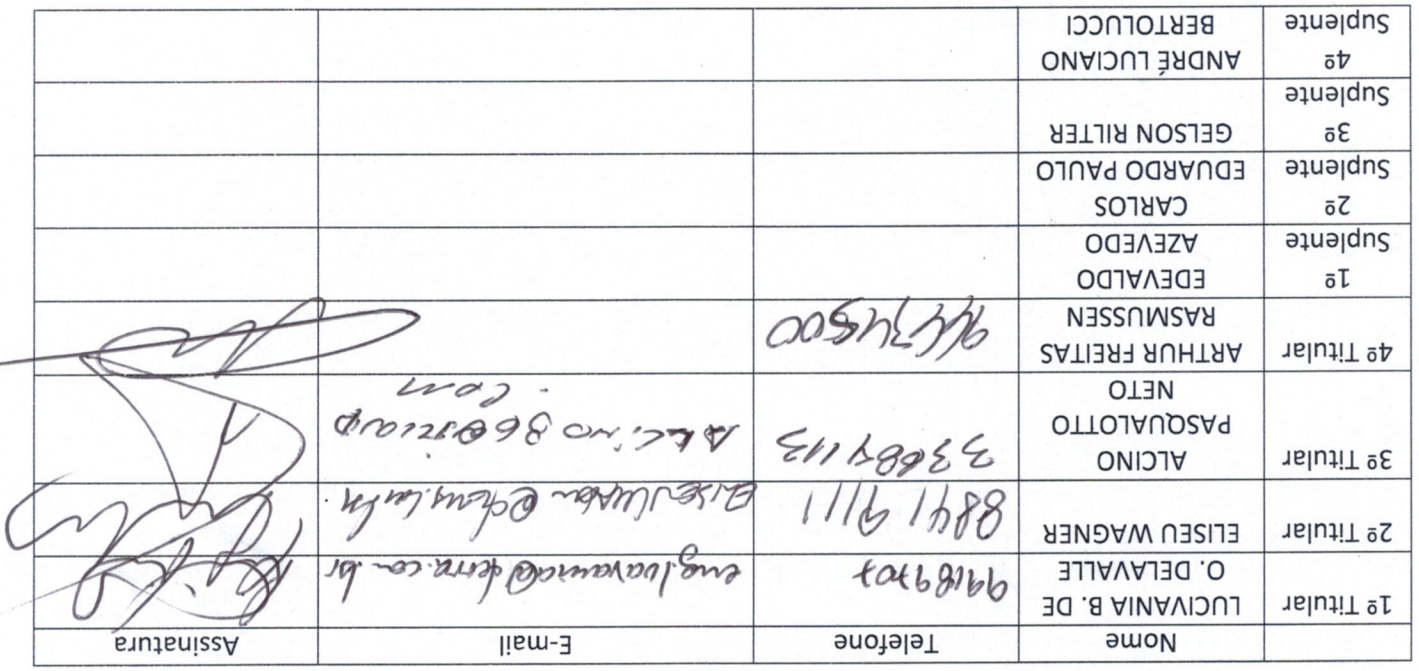 Nome Telefone E-mail Assinatura
1º Titular LUCIVANIA B. DE
O. DELAVALLE 99189707
2º Titular ELISEU WAGNER 88419111
3º Titular ALCINO
PASQUALOTTO
NETO
.com
4º Titular ARTHUR FREITAS
RASMUSSEN
1º
Suplente EDEVALDO
AZEVEDO
2º
Suplente CARLOS
EDUARDO PAULO
3º
Suplente GELSON RILTER
4º
Suplente ANDRÉ LUCIANO
BERTOLUCCI